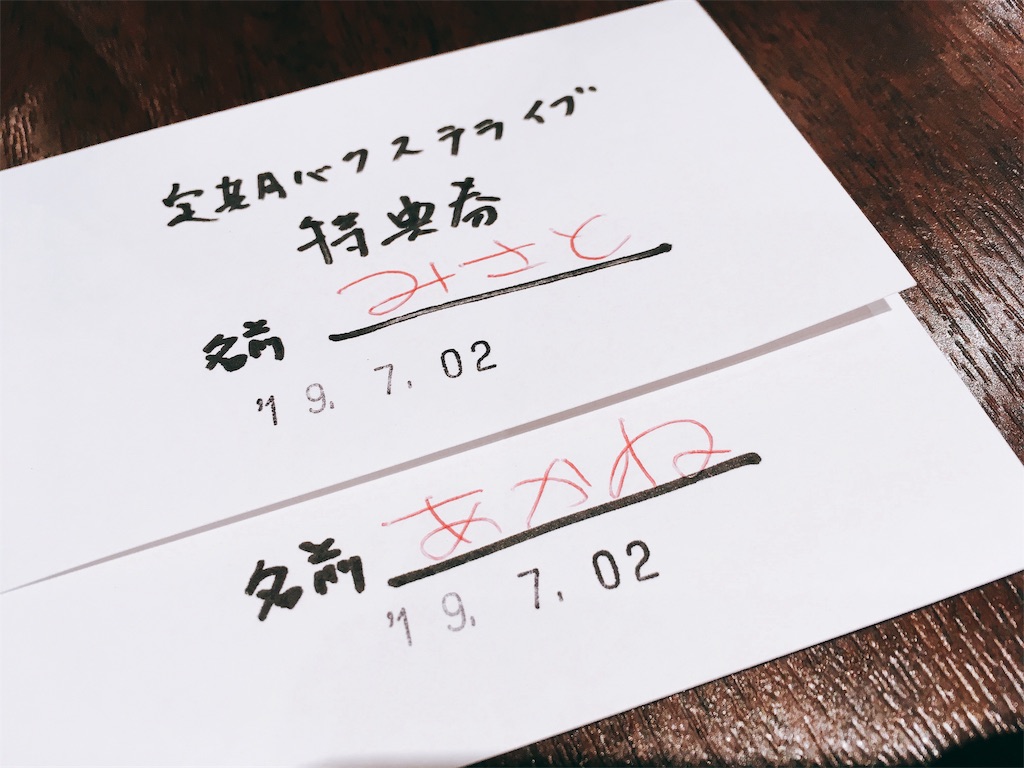 定期Aバックステライブ
特典券
名前 みさと
'19. 7. 02
名前 あかね
'19. 7. 02